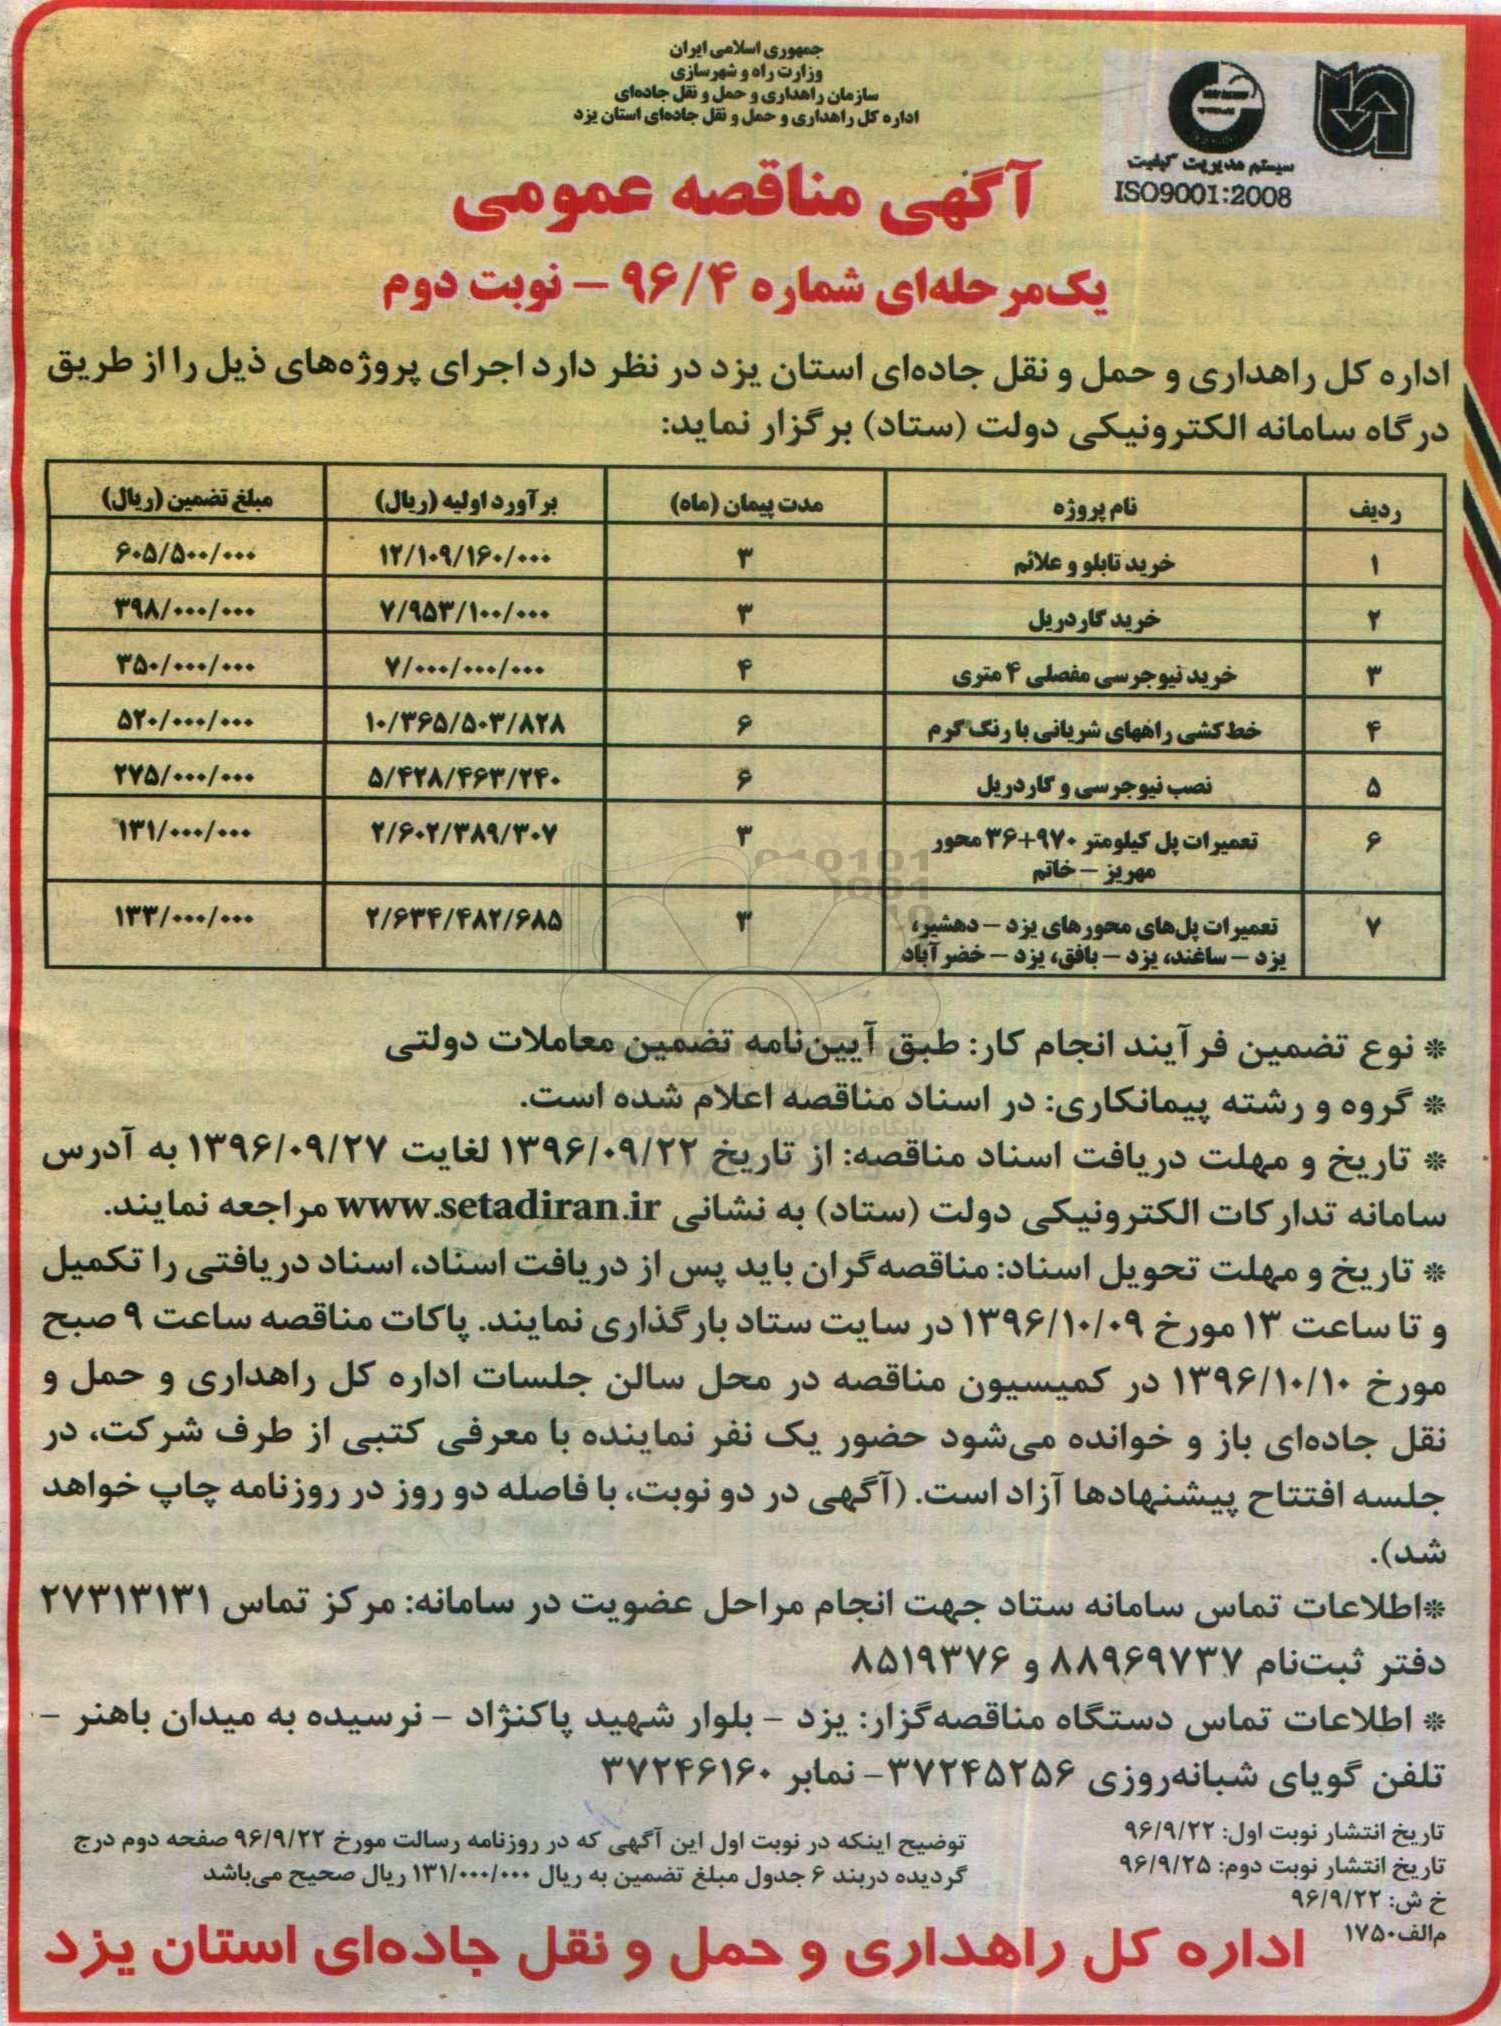 جمهوری اسلامی ایران
وزارت راه و شهرسازی
سازمان راهداری و حمل و نقل جاده‌ای
اداره کل راهداری و حمل و نقل جاده‌ای استان یزد
سیستم مدیریت کیفیت
ISO9001:2008
آگهی مناقصه عمومی
یک‌مرحله‌ای شماره ۹۶/۴ – نوبت دوم
اداره کل راهداری و حمل و نقل جاده‌ای استان یزد در نظر دارد اجرای پروژه‌های ذیل را از طریق
درگاه سامانه الکترونیکی دولت (ستاد) برگزار نماید:
ردیف نام پروژه مدت پیمان (ماه) برآورد اولیه (ریال) مبلغ تضمین (ریال)
۱ خرید تابلو و علائم ۳ ۱۲/۱۰۹/۱۶۰/۰۰۰ ۶۰۵/۵۰۰/۰۰۰
۲ خرید گاردریل ۳ ۷/۹۵۳/۱۰۰/۰۰۰ ۳۹۸/۰۰۰/۰۰۰
۳ خرید نیوجرسی مفصلی ۴ متری ۴ ۷/۰۰۰/۰۰۰/۰۰۰ ۳۵۰/۰۰۰/۰۰۰
۴ خط‌کشی راههای شریانی با رنگ گرم ۶ ۱۰/۳۶۵/۵۰۳/۸۲۸ ۵۲۰/۰۰۰/۰۰۰
۵ نصب نیوجرسی و گاردریل ۶ ۵/۴۲۸/۴۶۳/۲۴۰ ۲۷۵/۰۰۰/۰۰۰
۶ تعمیرات پل کیلومتر ۹۷۰+۳۶ محور ۳ ۲/۶۰۲/۳۸۹/۳۰۷ ۱۳۱/۰۰۰/۰۰۰
مهریز – خاتم
۷ تعمیرات پل‌های محورهای یزد – دهشیر، ۳ ۲/۶۳۴/۴۸۲/۶۸۵ ۱۳۳/۰۰۰/۰۰۰
یزد – ساغند، یزد – بافق، یزد – خضرآباد
* نوع تضمین فرآیند انجام کار: طبق آیین‌نامه تضمین معاملات دولتی
* گروه و رشته پیمانکاری: در اسناد مناقصه اعلام شده است.
پایگاه اطلاع رسانی مناقصه و مزایده
* تاریخ و مهلت دریافت اسناد مناقصه: از تاریخ ۱۳۹۶/۰۹/۲۲ لغایت ۱۳۹۶/۰۹/۲۷ به آدرس
سامانه تدارکات الکترونیکی دولت (ستاد) به نشانی www.setadiran.ir مراجعه نمایند.
* تاریخ و مهلت تحویل اسناد: مناقصه‌گران باید پس از دریافت اسناد، اسناد دریافتی را تکمیل
و تا ساعت ۱۳ مورخ ۱۳۹۶/۱۰/۰۹ در سایت ستاد بارگذاری نمایند. پاکات مناقصه ساعت ۹ صبح
مورخ ۱۳۹۶/۱۰/۱۰ در کمیسیون مناقصه در محل سالن جلسات اداره کل راهداری و حمل و
نقل جاده‌ای باز و خوانده می‌شود حضور یک نفر نماینده با معرفی کتبی از طرف شرکت، در
جلسه افتتاح پیشنهادها آزاد است. (آگهی در دو نوبت، با فاصله دو روز در روزنامه چاپ خواهد
شد).
*اطلاعات تماس سامانه ستاد جهت انجام مراحل عضویت در سامانه: مرکز تماس ۲۷۳۱۳۱۳۱
دفتر ثبت‌نام ۸۸۹۶۹۷۳۷ و ۸۵۱۹۳۷۶
* اطلاعات تماس دستگاه مناقصه‌گزار: یزد - بلوار شهید پاکنژاد - نرسیده به میدان باهنر -
تلفن گویای شبانه‌روزی ۳۷۲۴۵۲۵۶- نمابر ۳۷۲۴۶۱۶۰
تاریخ انتشار نوبت اول: ۹۶/۹/۲۲
تاریخ انتشار نوبت دوم: ۹۶/۹/۲۵
خ ش: ۹۶/۹/۲۲
م‌الف۱۷۵۰
توضیح اینکه در نوبت اول این آگهی که در روزنامه رسالت مورخ ۹۶/۹/۲۲ صفحه دوم درج
گردیده دربند ۶ جدول مبلغ تضمین به ریال ۱۳۱/۰۰۰/۰۰۰ ریال صحیح می‌باشد
اداره کل راهداری و حمل و نقل جاده‌ای استان یزد